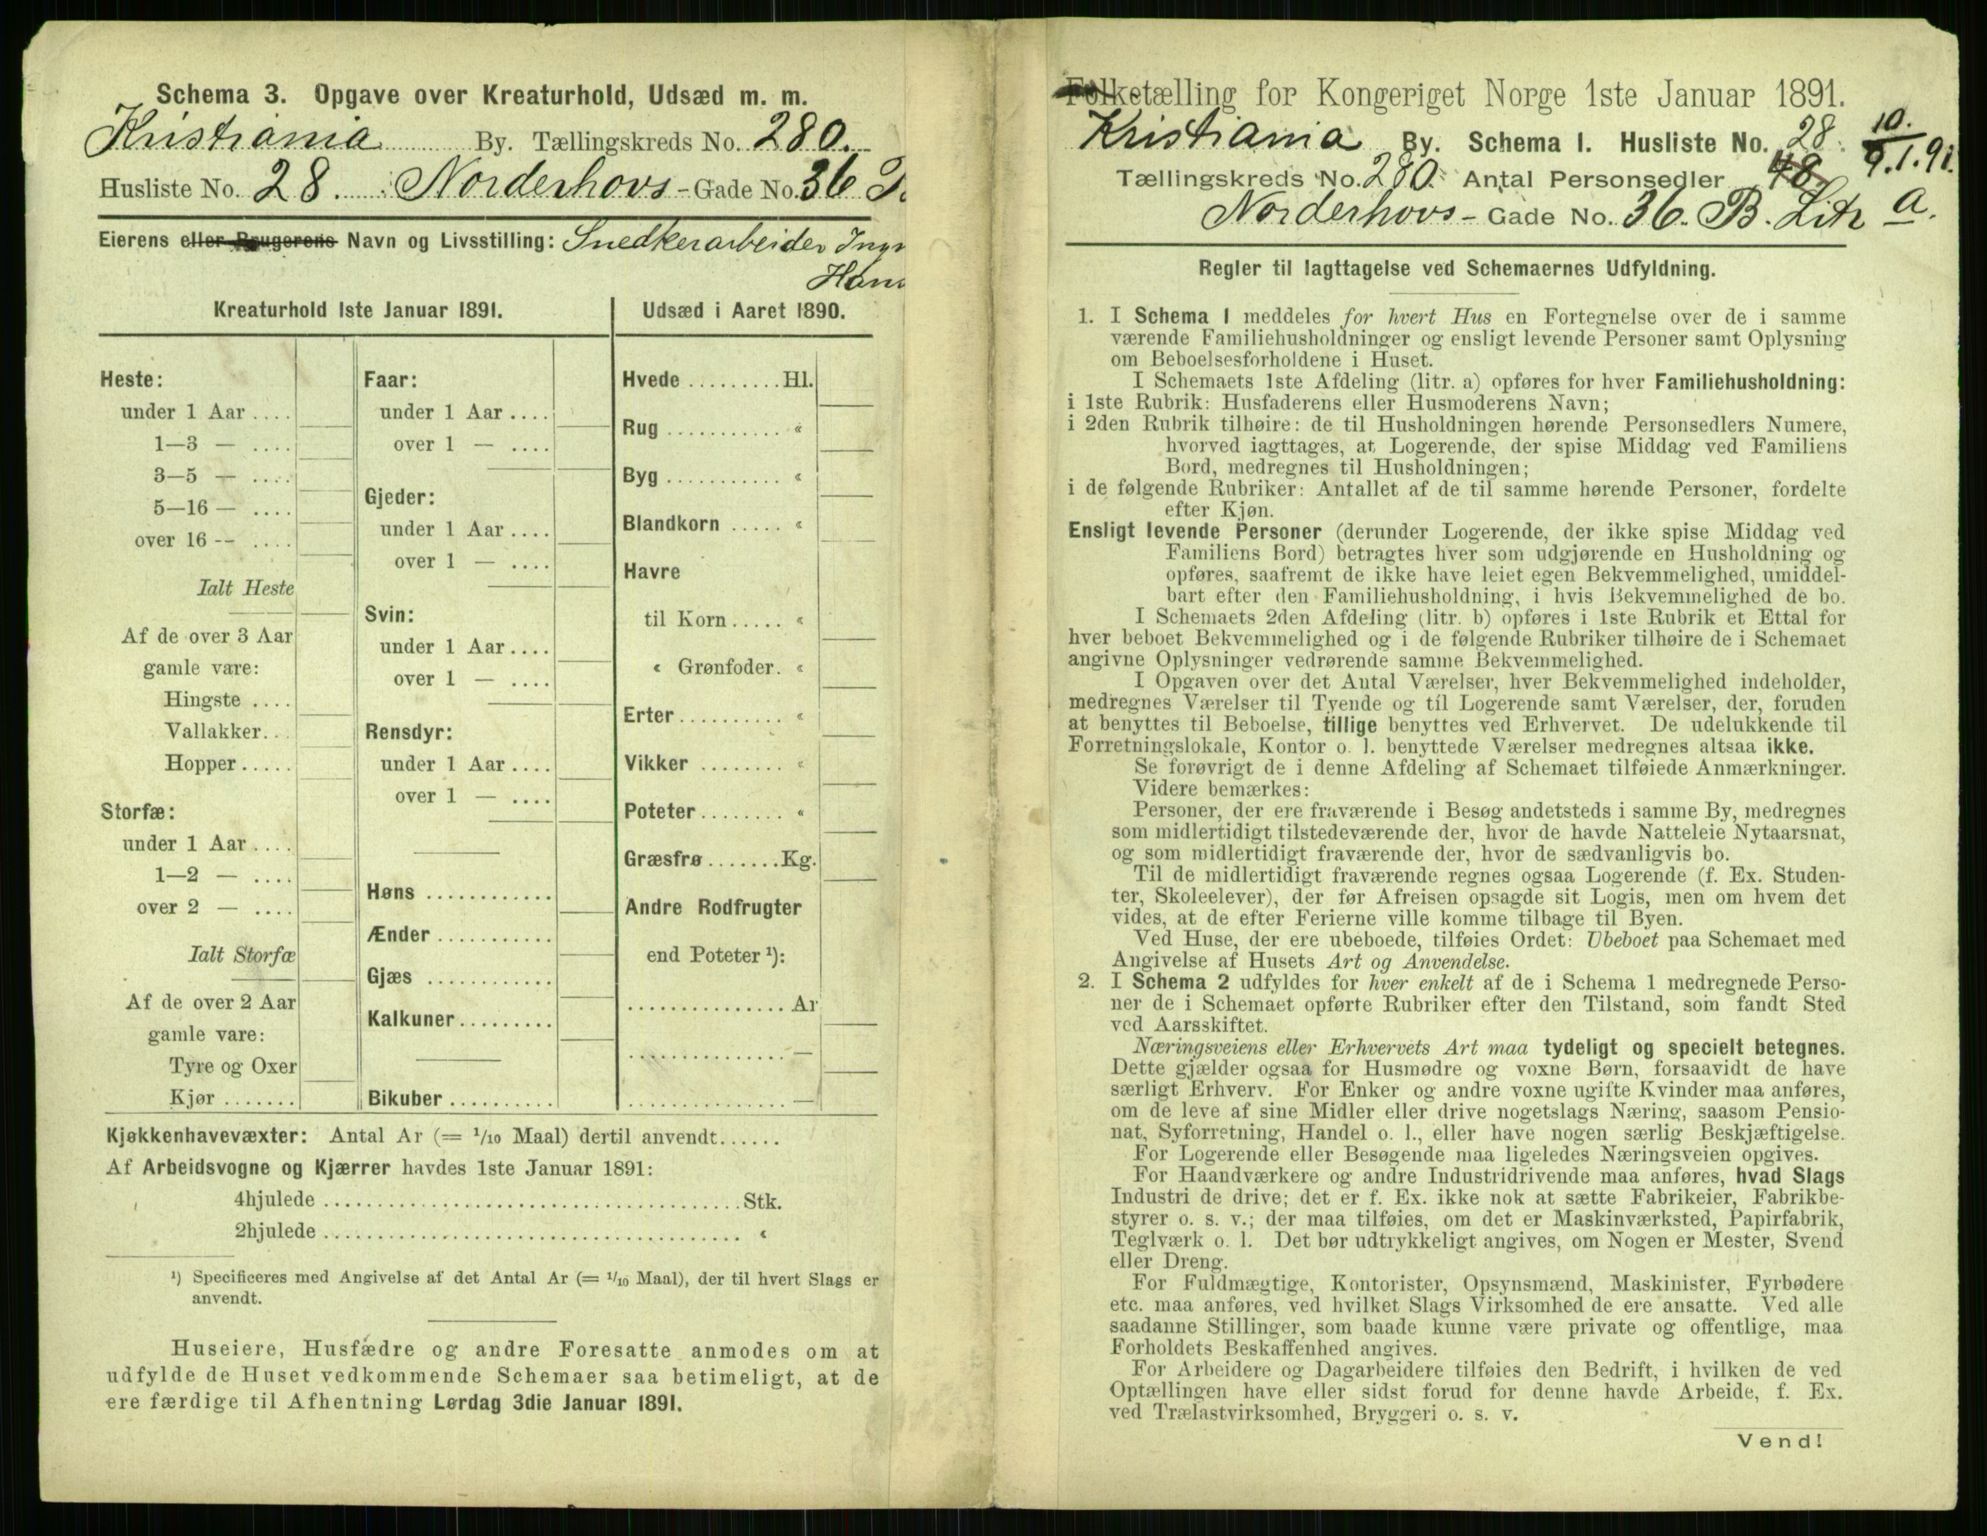 Schema 3. Opgave over Kreaturhold, Udsæd m. m.
Kristiania By. Tællingskreds No. 280.
Husliste No. 28. Norderhovs - Gade No. 36
Eierens eller Brugerens Navn og Livsstilling: Snedkerarbeider
Kreaturhold 1ste Januar 1891.
Heste:
under 1 Aar ....
1—3 — ....
3—5 — ....
5—16 — ....
over 16 -- ....
Ialt Heste
Af de over 3 Aar
gamle vare:
Hingste ....
Vallakker...
Hopper.....
Storfæ:
under 1 Aar ....
1—2 — ....
over 2 — ....
Ialt Storfæ
Af de over 2 Aar
gamle vare:
Tyre og Oxer
Kjør .......
Faar:
under 1 Aar ....
over 1 — ....
Gjeder:
under 1 Aar ....
over 1 — ....
Svin:
under 1 Aar ....
over 1 — ....
Rensdyr:
under 1 Aar ....
over 1 — ....
Høns ............
Ænder ...........
Gjæs ............
Kalkuner.........
Bikuber ..........
Udsæd i Aaret 1890.
Hvede .........Hl.
Rug ........... «
Byg ........... «
Blandkorn ..... «
Havre
til Korn ..... «
« Grønfoder. «
Erter.......... «
Vikker ........ «
Poteter........ «
Græsfrø .......Kg.
Andre Rodfrugter
end Poteter ¹):
............... Ar
............... —
............... —
Kjøkkenhavevæxter: Antal Ar (= 1/10 Maal) dertil anvendt......
Af Arbeidsvogne og Kjærrer havdes 1ste Januar 1891:
4hjulede ........................................Stk.
2hjulede ........................................ «
¹) Specificeres med Angivelse af det Antal Ar (= 1/10 Maal), der til hvert Slags er
anvendt.
Huseiere, Husfædre og andre Foresatte anmodes om at
udfylde de Huset vedkommende Schemaer saa betimeligt, at de
ere færdige til Afhentning Lørdag 3die Januar 1891.
Folketælling for Kongeriget Norge 1ste Januar 1891.
Kristiania By. Schema I. Husliste No. 28. 10.
Tællingskreds No. 280. Antal Personsedler 48. 9.1.91.
Norderhovs - Gade No. 36. B. Litr a.
Regler til Iagttagelse ved Schemaernes Udfyldning.
1. I Schema 1 meddeles for hvert Hus en Fortegnelse over de i samme
værende Familiehusholdninger og ensligt levende Personer samt Oplysning
om Beboelsesforholdene i Huset.
I Schemaets 1ste Afdeling (litr. a) opføres for hver Familiehusholdning:
i 1ste Rubrik: Husfaderens eller Husmoderens Navn;
i 2den Rubrik tilhøire: de til Husholdningen hørende Personsedlers Numere,
hvorved iagttages, at Logerende, der spise Middag ved Familiens
Bord, medregnes til Husholdningen;
i de følgende Rubriker: Antallet af de til samme hørende Personer, fordelte
efter Kjøn.
Ensligt levende Personer (derunder Logerende, der ikke spise Middag ved
Familiens Bord) betragtes hver som udgjørende en Husholdning og
opføres, saafremt de ikke have leiet egen Bekvemmelighed, umiddel-
bart efter den Familiehusholdning, i hvis Bekvemmelighed de bo.
I Schemaets 2den Afdeling (litr. b) opføres i 1ste Rubrik et Ettal for
hver beboet Bekvemmelighed og i de følgende Rubriker tilhøire de i Schemaet
angivne Oplysninger vedrørende samme Bekvemmelighed.
I Opgaven over det Antal Værelser, hver Bekvemmelighed indeholder,
medregnes Værelser til Tyende og til Logerende samt Værelser, der, foruden
at benyttes til Beboelse, tillige benyttes ved Erhvervet. De udelukkende til
Forretningslokale, Kontor o. l. benyttede Værelser medregnes altsaa ikke.
Se forøvrigt de i denne Afdeling af Schemaet tilføiede Anmærkninger.
Videre bemærkes:
Personer, der ere fraværende i Besøg andetsteds i samme By, medregnes
som midlertidigt tilstedeværende der, hvor de havde Natteleie Nytaarsnat,
og som midlertidigt fraværende der, hvor de sædvanligvis bo.
Til de midlertidigt fraværende regnes ogsaa Logerende (f. Ex. Studen-
ter, Skoleelever), der før Afreisen opsagde sit Logis, men om hvem det
vides, at de efter Ferierne ville komme tilbage til Byen.
Ved Huse, der ere ubeboede, tilføies Ordet: Ubeboet paa Schemaet med
Angivelse af Husets Art og Anvendelse.
2. I Schema 2 udfyldes for hver enkelt af de i Schema 1 medregnede Perso-
ner de i Schemaet opførte Rubriker efter den Tilstand, som fandt Sted
ved Aarsskiftet.
Næringsveiens eller Erhvervets Art maa tydeligt og specielt betegnes.
Dette gjælder ogsaa for Husmødre og voxne Børn, forsaavidt de have
særligt Erhverv. For Enker og andre voxne ugifte Kvinder maa anføres,
om de leve af sine Midler eller drive nogetslags Næring, saasom Pensio-
nat, Syforretning, Handel o. l., eller have nogen særlig Beskjæftigelse.
For Logerende eller Besøgende maa ligeledes Næringsveien opgives.
For Haandværkere og andre Industridrivende maa anføres, hvad Slags
Industri de drive; det er f. Ex. ikke nok at sætte Fabrikeier, Fabrikbe-
styrer o. s. v.; der maa tilføies, om det er Maskinværksted, Papirfabrik,
Teglværk o. l. Det bør udtrykkeligt angives, om Nogen er Mester, Svend
eller Dreng.
For Fuldmægtige, Kontorister, Opsynsmænd, Maskinister, Fyrbødere
etc. maa anføres, ved hvilket Slags Virksomhed de ere ansatte. Ved alle
saadanne Stillinger, som baade kunne være private og offentlige, maa
Forholdets Beskaffenhed angives.
For Arbeidere og Dagarbeidere tilføies den Bedrift, i hvilken de ved
Optællingen have eller sidst forud for denne havde Arbeide, f. Ex.
ved Trælastvirksomhed, Bryggeri o. s. v.
Vend!